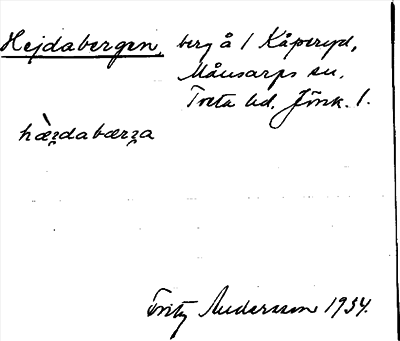 Hejdabergen, berg å 1 Kåperyd,
Månsarps sn.
Tveta hd. Jönk. l.
hæ̀ʒdabærʒa
Fritz Andersson 1934.